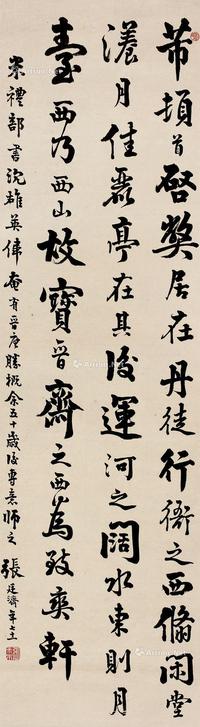 芾頓首啓獘居在丹徒行衙之西翛閑堂
瀁月佳麗亭在其後運河之闊水東則月
臺西乃西山故寶晉齋之西為致爽軒
米禮部書沈雄英偉奄有晉唐勝概余五十歲後專意師之 張廷濟年七十